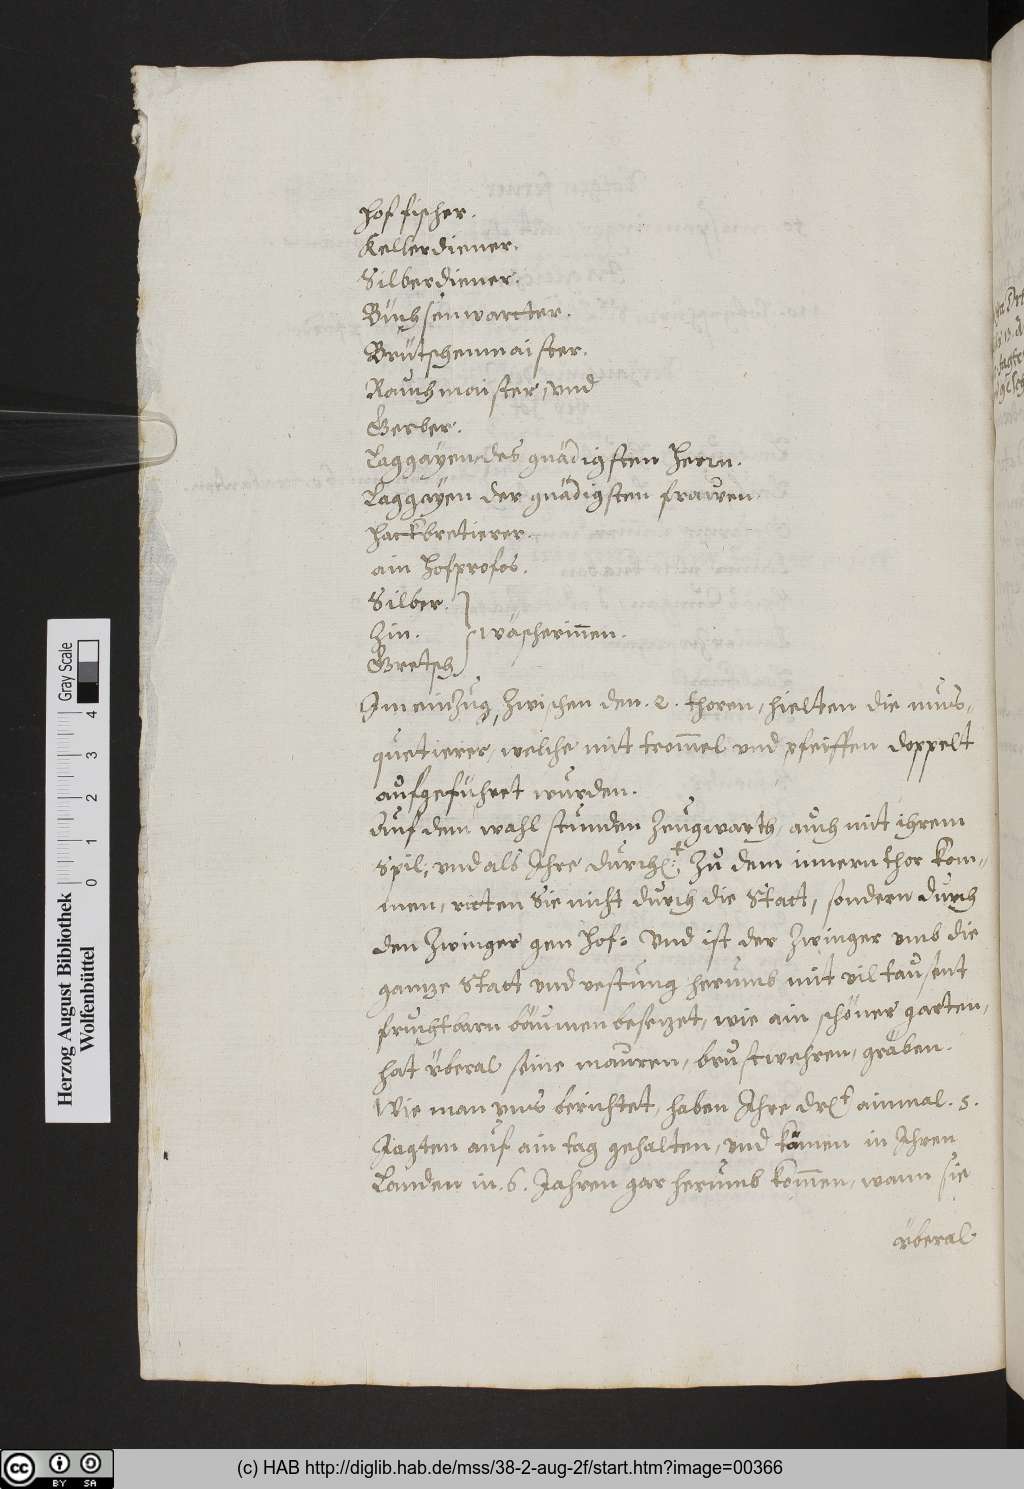 Hof fischer.
Kellerdiener.
Silberdiener.
Büchsenwartter.
Brütschenmaister.
Rauchmaister, vnd
Gerber.
Laggayen des gnädigsten Herrn.
Laggayen der gnädigsten frawen.
Hackbretierer.
ain Hofprofos.
Silber.
Zin. } wäscherinnen.
Gretsch
Im einzug, Zwischen den .2. thoren, hielten die mus-
quetierer, welche mit trommel vnd pfeiffen doppelt
aufgeführet wurden.
Auf dem wahl stunden Zeugwarth, auch mit ihrem
Spil, vnd als Ihre Zu dem innern thor kom-
men, ritten Sie nicht durch die Statt, sondern durch
den Zwinger gen Hof. Vnd ist der Zwinger vmb die
gantze Statt vnd vestung herumb mit vil tausent
fruchtbarn bäumen besetzet, wie ain schöner garten,
hat überal seine mauren, brustwehren, gräben.
Wie man vns berichtet, haben Ihre ainmal .5.
Jagten auf ain tag gehalten, vnd kämen in Ihren
Landen in .6. Jahren gar herumb kommen, wann sie
überal
Gray Scale
4
3
2
1
0
Herzog August Bibliothek
Wolfenbüttel
cc BY SA
(c) HAB http://diglib.hab.de/mss/38-2-aug-2f/start.htm?image=00366